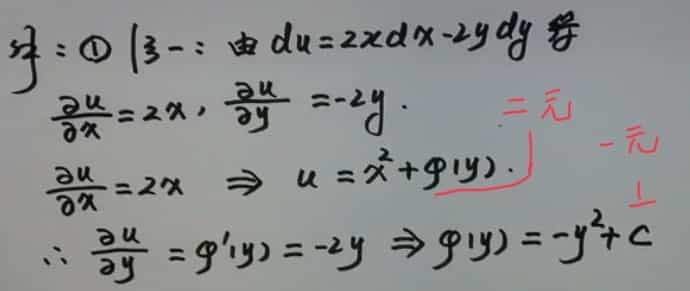 解：① 法一：由 du = 2xdx - 2ydy 得
∂u/∂x = 2x, ∂u/∂y = -2y.
二元
一元
∂u/∂x = 2x ⇒ u = x² + φ(y).
∴ ∂u/∂y = φ'(y) = -2y ⇒ φ(y) = -y² + C